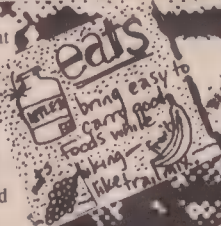 eats
bring easy to
carry good
foods while
hiking –
like trail mix